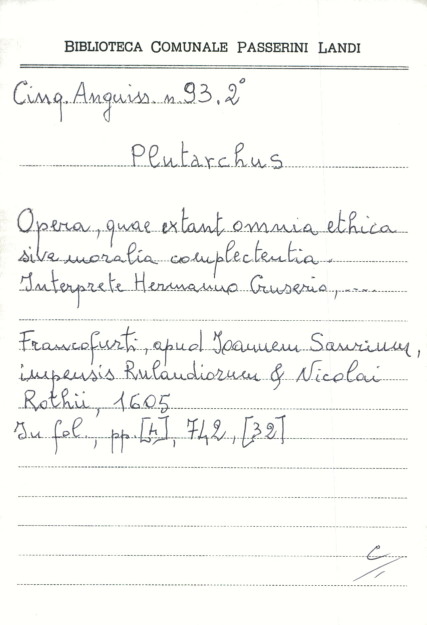 BIBLIOTECA COMUNALE PASSERINI LANDI
Cinq. Anguiss. n. 93.2°
Plutarchus
Opera, quae extant omnia ethica
sive moralia complectentia.
Interprete Hermanno Cruserio, ....
Francofurti, apud Ioannem Saurium,
impensis Rulandiorum & Nicolai
Rothii, 1605
In fol., pp. [4], 742, [32]
C